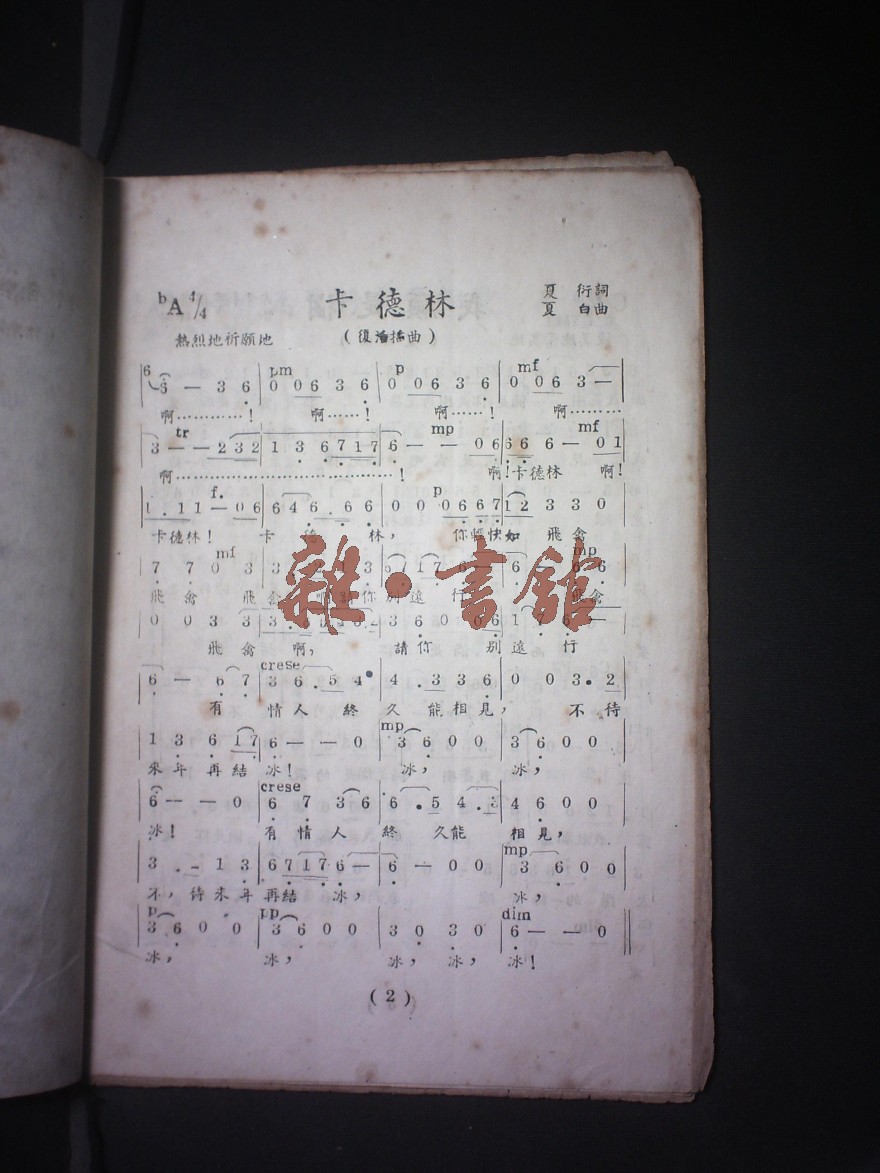 卡德林
bA 4/4
夏 衍詞
夏 白曲
熱烈地祈願地
(復活插曲)
6 pm p mf
5 — 3 6 | 0 0 6 3 6 | 0 0 6 3 6 | 0 0 6 3 —
啊…………! 啊……! 啊……! 啊………
tr mp mf
3 — — 2 3 2 | 1 3 6 7 1 7 | 6 — — 0 6 | 6 6 6 — 0 1
啊……………………………………! 啊!卡德林 啊!
f. p
1 . 1 1 — 0 6 | 6 4 6 . 6 6 | 0 0 0 6 6 7 | 1 2 3 3 0
卡德林! 卡 德 林, 你輕快如 飛禽
mf mp
7 7 0 3
飛禽 飛禽 請你別遠行 飛禽
0 0 3 3 | 3 6 0 0 6 | 1 7 6 —
飛禽 啊, 請你 別遠行
crese
6 — 6 7 | 3 6 . 5 4 | 4 . 3 3 6 | 0 0 3 . 2
有 情人終 久能相見, 不待
mp
1 3 6 1 7 | 6 — — 0 | 3 6 0 0 | 3 6 0 0
來年再結 冰! 冰, 冰,
crese
6 — — 0 | 6 7 3 6 | 6 . 5 4 . 3 | 4 6 0 0
冰! 有情人 終 久能 相見,
mp
3 . — 1 3 | 6 7 1 7 6 — | 6 — 0 0 | 3 6 0 0
不, 待來年 再結 冰, 冰,
p pp dim
3 6 0 0 | 3 6 0 0 | 3 0 3 0 | 6 — — 0
冰, 冰, 冰, 冰, 冰!
雜·書館
(2)